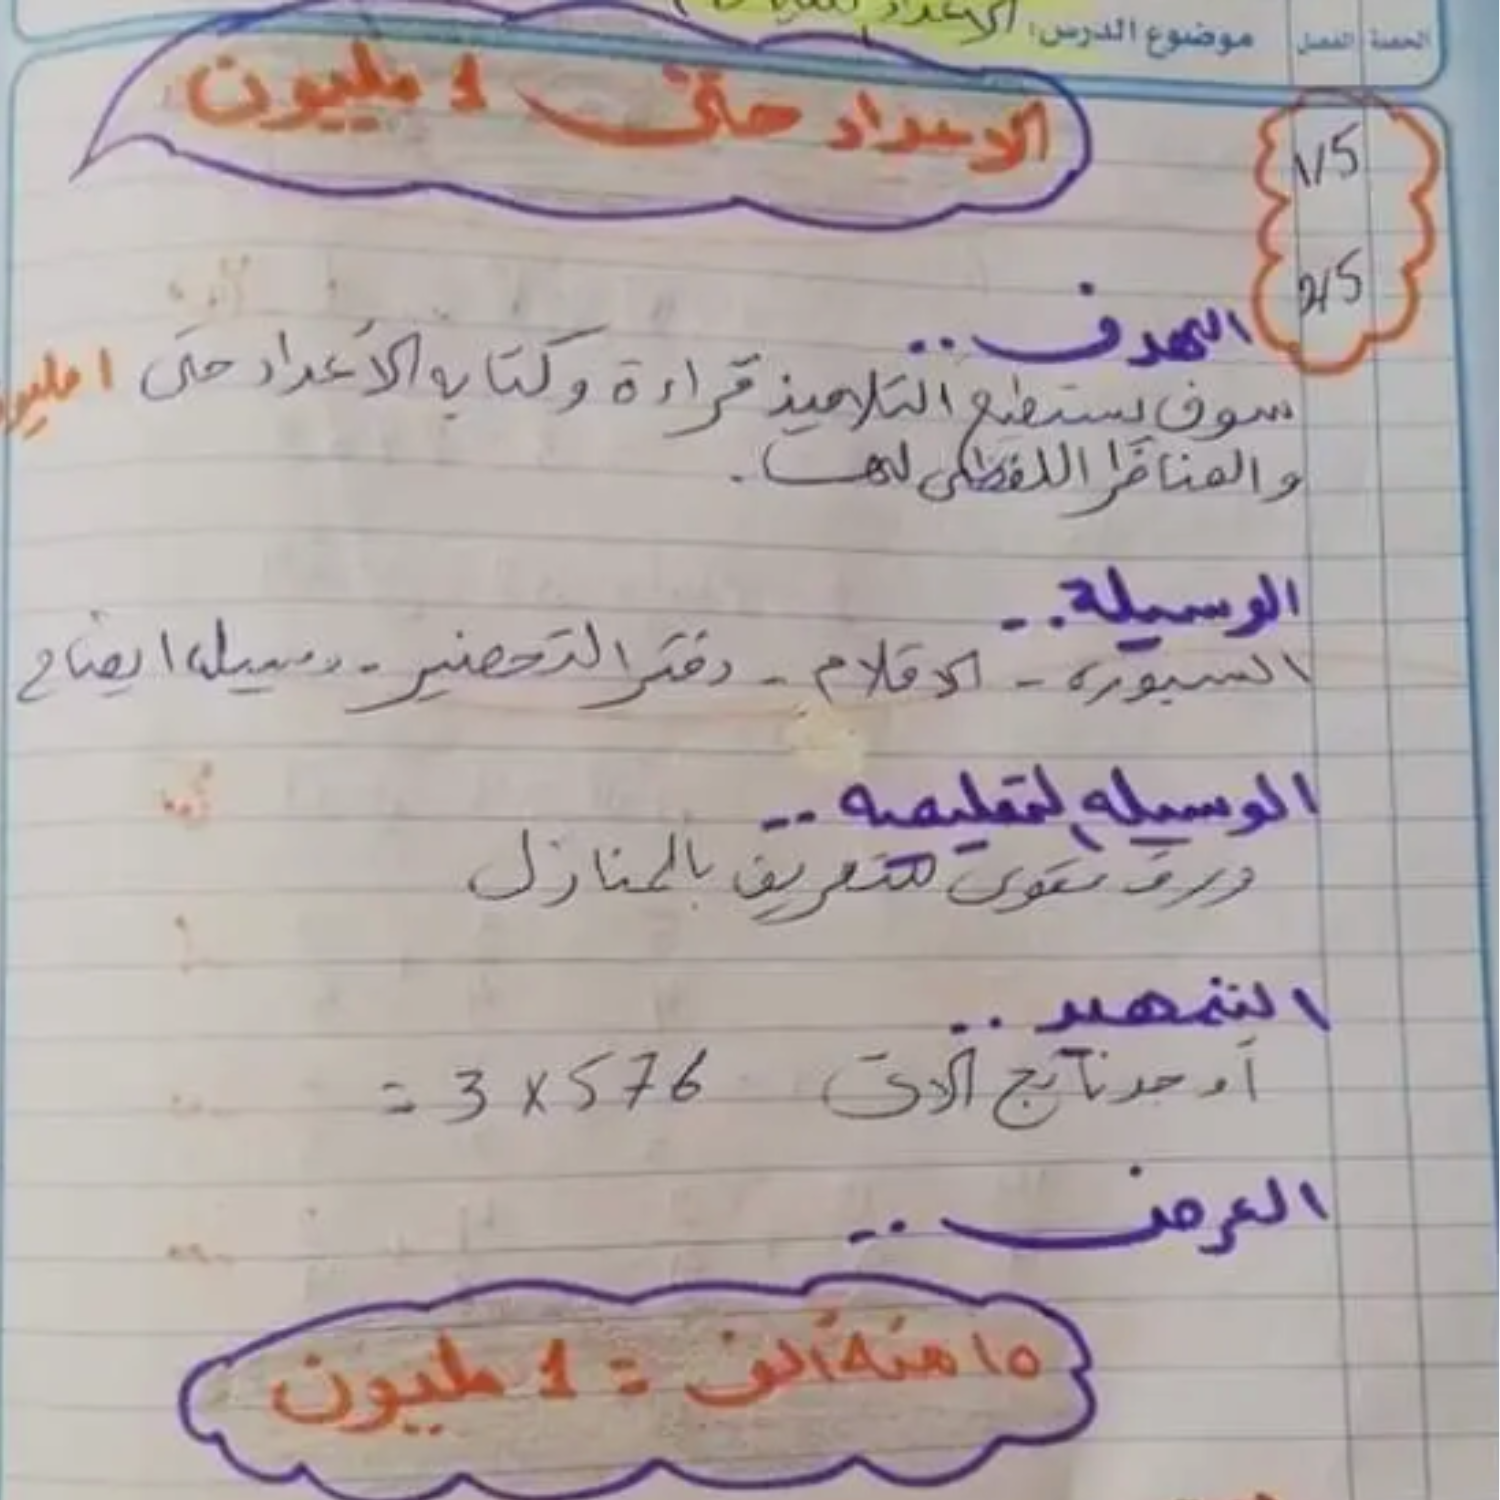 الحصة الفصل موضوع الدرس: الاعداد
الاعداد حتى 1 مليون
1/5
2/5
الهدف..
سوف يستطيع التلاميذ قراءة وكتابه الأعداد حتى ١ مليون
والمناظر اللفظى لها.
الوسيلة..
السبوره - الاقلام - دفتر التحضير - وسيله ايضاح
الوسيله التعليميه..
ورق مقوى للتعريف بالمنازل
التمهيد..
أوجد ناتج الاتى 576 × 3 =
العرض..
١٥ مئة ألف = 1 مليون